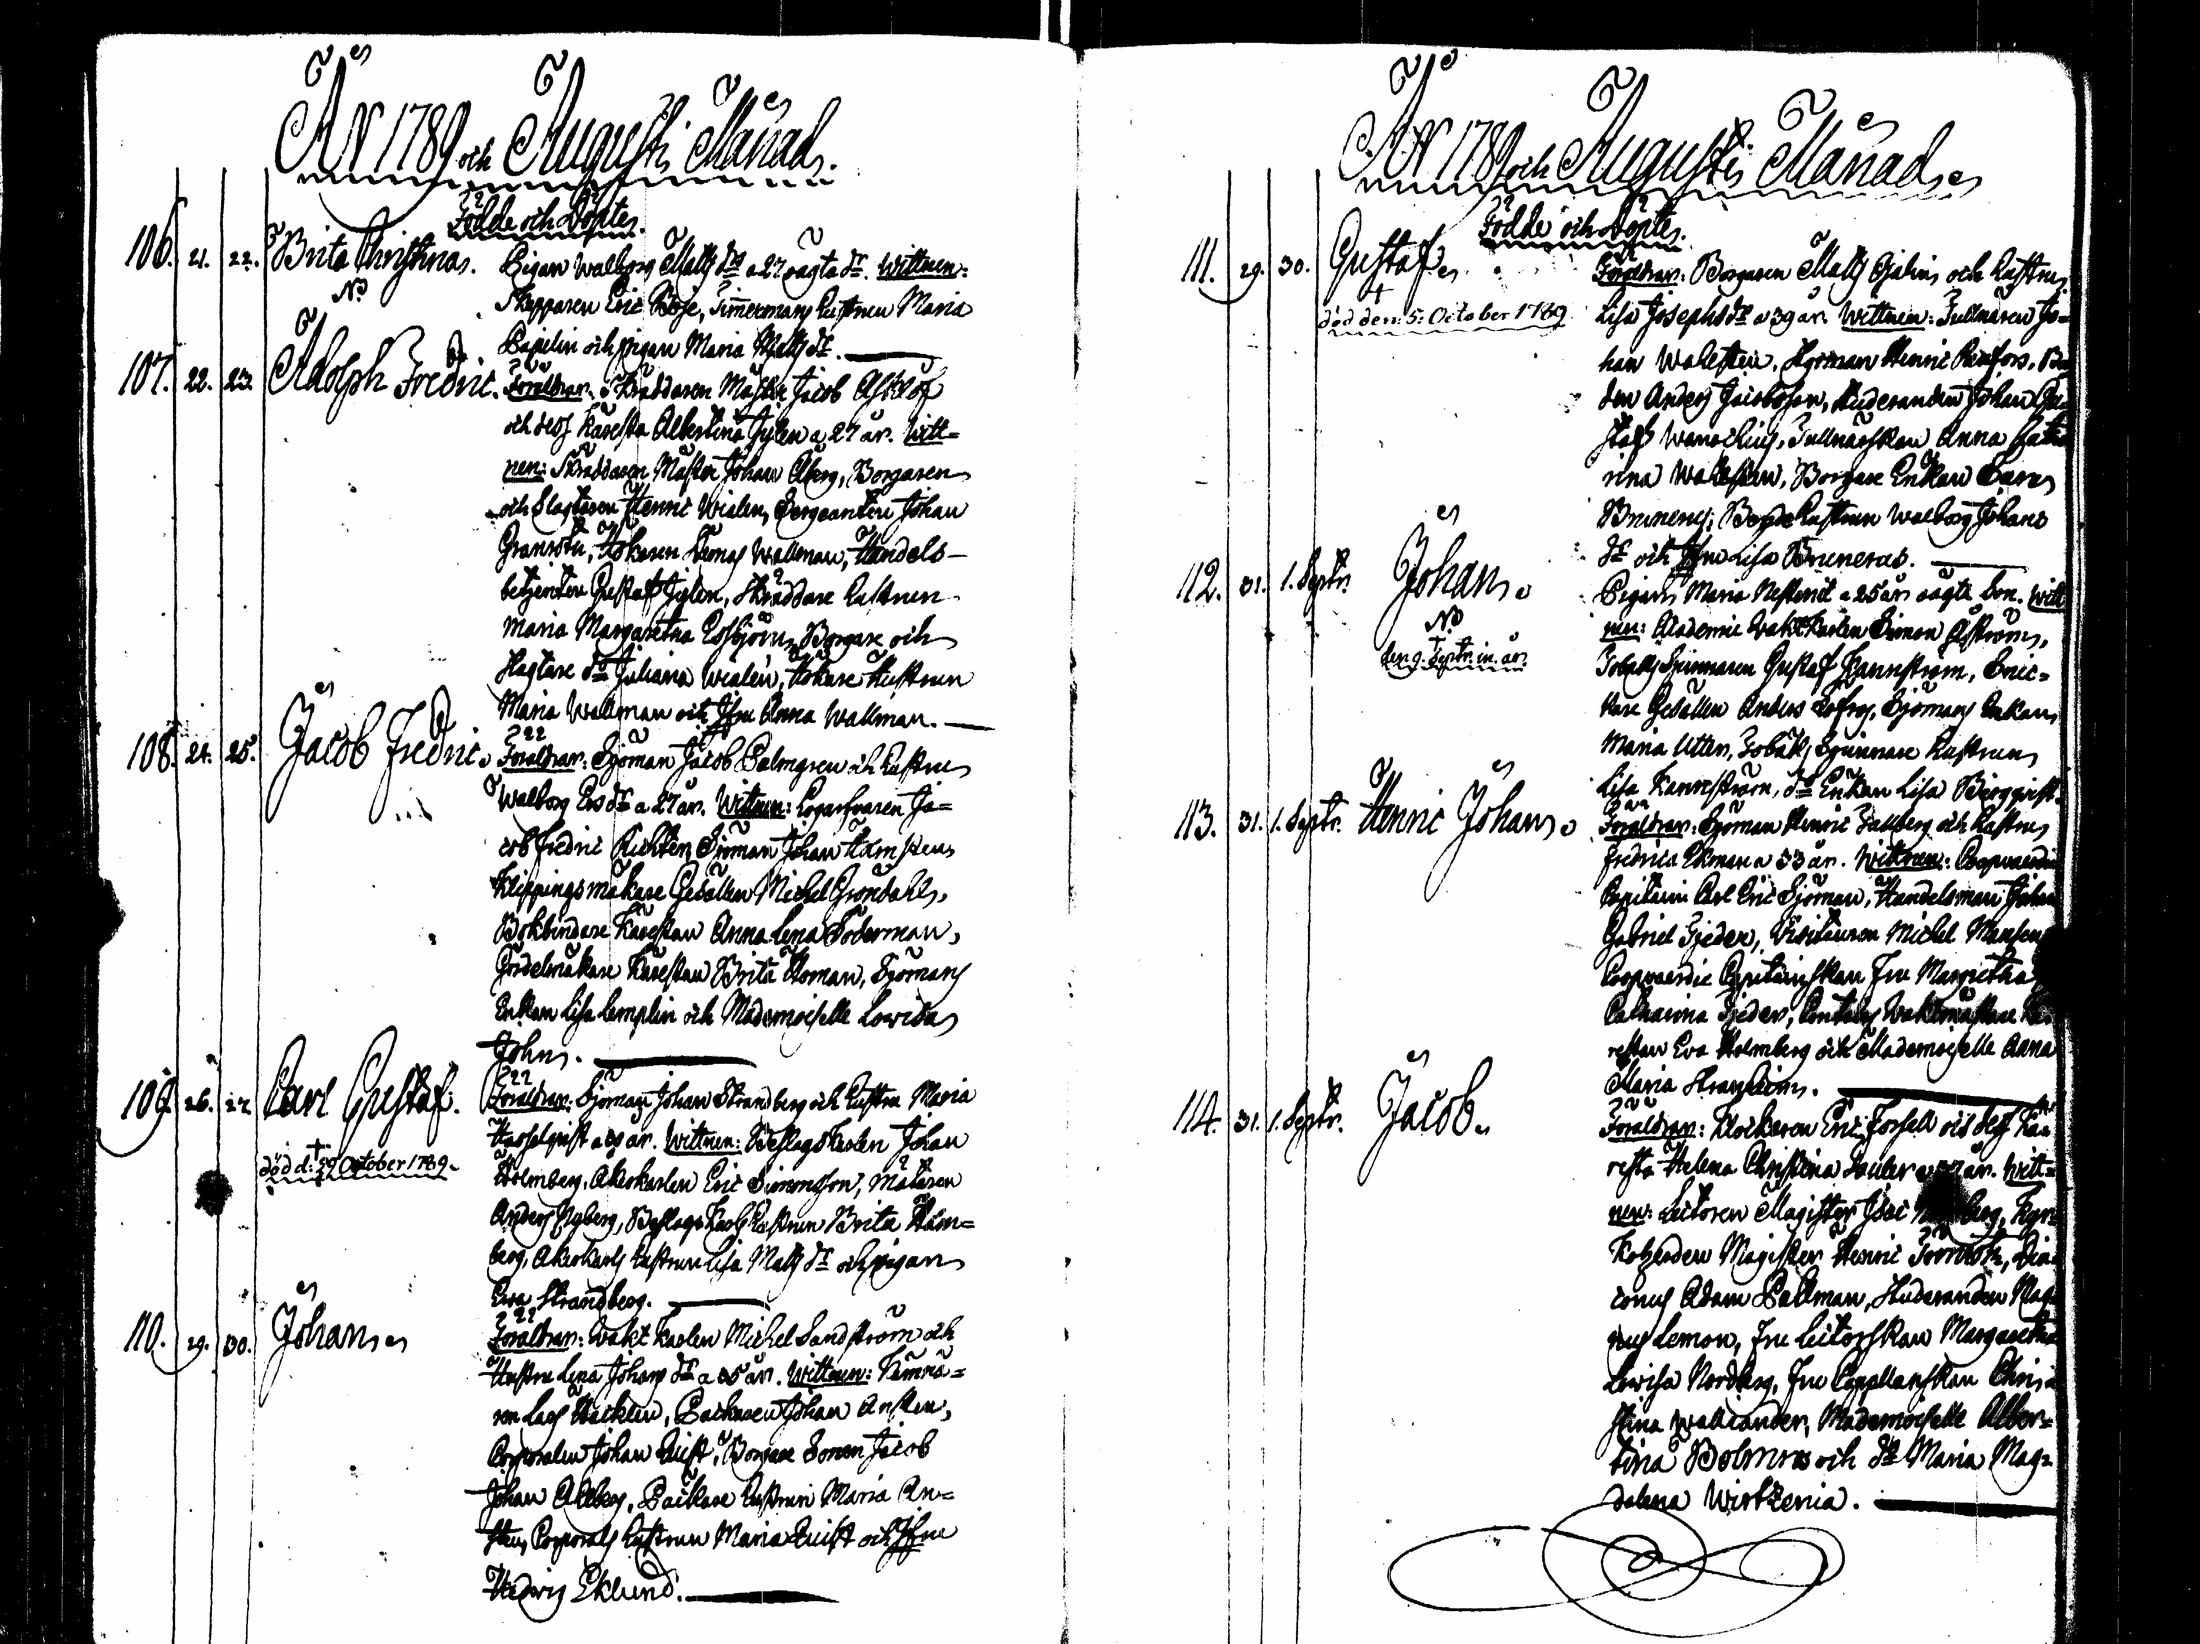 År 1789 och Augusti Månad.
Födde och Döpte.
106. 21. 22. Brita Christina. Pigan Walborg Matts dr a 27 oägta dr. Wittnen:
No Skepparen Eric Böje, Timmermans hustrun Maria
Papelin och pigan Maria Matts dr.
107. 22. 23. Adolph Fredric. Föräldrar: Skräddaren Mäster Jacob Ahlöf
och dess Käresta Albertina Gylen a 27 år. Witt=
nen: Skräddaren Mäster Johan Åberg, Borgaren
och Slagtaren Henric Wialen, Sergeanten Johan
Granroth, Hökaren Thomas Wallman, Handels-
betjenten Gustaf Gylen, Skräddare hustrun
Maria Margaretha Esbjörn, Borgare och
Slagtare do Juliana Wialen, Hökare Hustrun
Maria Wallman och Jfru Anna Wallman.
108. 24. 25. Jacob Fredric. Föräldrar: Sjöman Jacob Palmgren och hustrun
Walborg Ers dr a 27 år. Wittnen: Logarfvaren Ja=
cob Fredric Richter, Sjöman Johan Hamsten,
Klippingsmakare Gesällen Michel Gröndahl,
Bokbindare Kärestan Anna Lena Söderman,
Gördelmakare Kärestan Brita Homan, Sjömans
Enkan Lisa Lemplin och Mademoiselle Lovisa
John.
109. 26. 27. Carl Gustaf. Föräldrar: Sjöman Johan Strandberg och hustru Maria
död d: 29 October 1789. Hasselqvist a år. Wittnen: Beslagskarlen Johan
Holmberg, Åkerkarlen Eric Simonsson, Målaren
Anders Nyberg, Beslags Karls hustrun Brita Holm=
berg, Åkerkarls hustrun Lisa Matts dr och pigan
Ewa Strandberg.
110. 29. 30. Johan. Föräldrar: Wakt karlen Michel Sandström och
Hustru Lena Johans dr a år. Wittnen: Kämnä=
ren Lars Hacklin, Packaren Johan Ansten,
Corporalen Johan Quist, Borgare Sonen Jacob
Johan Ahlberg, Packare hustrun Maria An=
sten, Corporals hustrun Maria Quist och Jfru
Hedwig Eklund.
År 1789 och Augusti Månad.
Födde och Döpte.
111. 29. 30. Gustaf. Föräldrar: Borgaren Matts Gjalin och hustrun
död den: 5: October 1789 Lisa Josephs dr a 39 år. Wittnen: Tullnären Jo=
han Walsten, Styrman Henric Renfors,
den Anders Jacobsson, Studeranden Johan Gu=
staf Wanochius, Tullnärskan Anna Catha
rina Walsten, Borgare Enkan Sara
Brunerus, hustrun Walborg Johans
dr och Jfru Lisa Brunerus.
112. 31. 1. Septr. Johan. Pigans Maria Nestrit a 25 år oägte son. Witt
No nen: Academie Wakt karlen Simon Åström,
den 9. Septr. in. år. Tobaks Spinnaren Gustaf Kannström, Snic=
kare Gesällen Anders Löfros, Sjömans Enkan
Maria Utter, Tobaks Spinnare hustrun
Lisa Kannström, do Enkan Lisa Bergqvist.
113. 31. 1. Septr. Henric Johan. Föräldrar: Sjöman Henric Fallberg och hustrun
Fredrica Ekman a 33 år. Wittnen: Coopvaerdie
Capitain Carl Eric Sjöman, Handelsman Johan
Gabriel Tjeder, Visiteuren Michel Mansen
Coopvaerdie Capitainskan Fru Margretha
Catharina Tjeder, Waktmästare Kä=
restan Eva Holmberg och Mademoiselle Anna
Maria Stranheim.
114. 31. 1. Septr. Jacob. Föräldrar: Klockaren Eric Forsell och dess Kä=
resta Helena Christina Sauler a år. Witt=
nen: Lectoren Magister Isac berg, Kyr=
koherden Magister Henric Forntoth, Dia
conus Adam Pallman, Studeranden Mag
nus Lemon, Fru Lectorskan Margaretha
Lovisa Nordberg, Fru Capellanskan Chri=
stina Wallander, Mademoiselle Alber=
tina Bolmros och do Maria Mag=
dalena Wirtzenia.